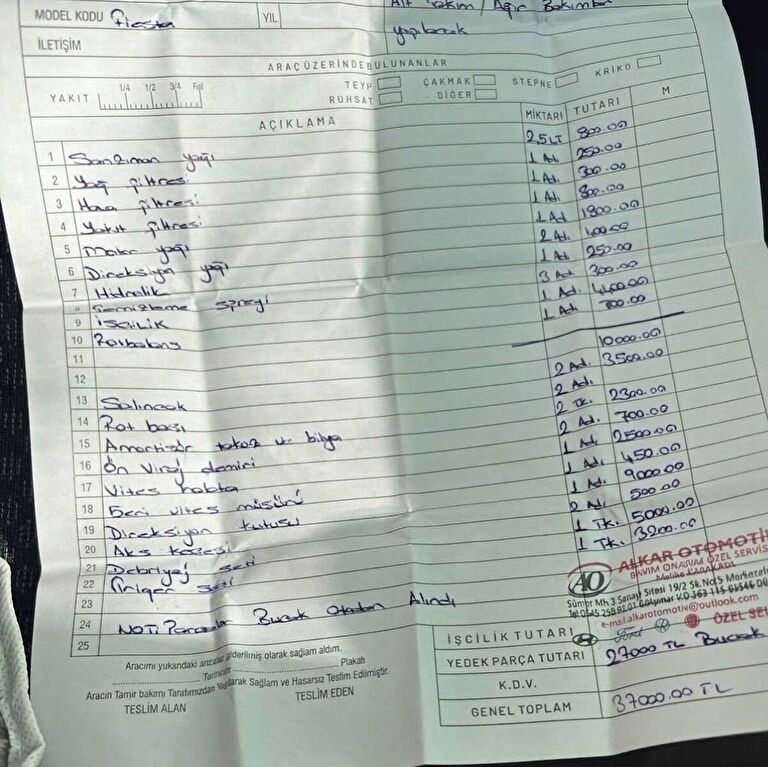 MODEL KODU Fiesta YIL
Alt Takım / Ağır Bakımları
yapılacak
İLETİŞİM
ARAÇ ÜZERİNDE BULUNANLAR
YAKIT 1/4 1/2 3/4 Full
TEYP ÇAKMAK STEPNE KRİKO
RUHSAT DİĞER
AÇIKLAMA MİKTARI TUTARI M
1 Sanzıman yağı 2.5 LT 800.00
2 Yağ filtresi 1 Ad. 250.00
3 Hava filtresi 1 Ad. 300.00
4 Yakıt filtresi 1 Ad. 800.00
5 Motor yağı 1 Ad. 1800.00
6 Direksiyon yağı 2 Ad. 400.00
7 Hidrolik 1 Ad. 250.00
8 Temizleme spreyi 3 Ad. 300.00
9 İşçilik 1 Ad. 4400.00
10 Rotbalans 1 Ad. 700.00
11 10000.00
12
13 Salıncak 2 Ad. 3500.00
14 Rot başı 2 Ad.
15 Amortisör takoz ve bilya 2 Tk. 2300.00
16 Ön Viraj demiri 2 Ad. 700.00
17 Vites halatı 1 Ad. 2500.00
18 Geri vites müşürü 1 Ad. 450.00
19 Direksiyon kutusu 1 Ad. 9000.00
20 Aks keçesi 2 Ad. 500.00
21 Debriyaj seti 1 Tk. 5000.00
22 Triger seti 1 Tk. 3200.00
23
24 NOT: Parçalar Burak Otodan Alındı
25
AO ALKAR OTOMOTİV
BAKIM ONARIM ÖZEL SERVİS
Sümer Mh. 3. Sanayi Sitesi 19/2 Sk. No:5 Merkezefendi
e-mail:alkarotomotiv@outlook.com
Ford ÖZEL SER
Aracımı yukarıdaki arızalar giderilmiş olarak sağlam aldım.
Tarihinde Plakalı
Aracın Tamir bakımı Tarafımızdan Yapılarak Sağlam ve Hasarsız Teslim Edilmiştir.
TESLİM ALAN TESLİM EDEN
İŞÇİLİK TUTARI
YEDEK PARÇA TUTARI 27000 TL Burak
K.D.V.
GENEL TOPLAM 37000.00 TL